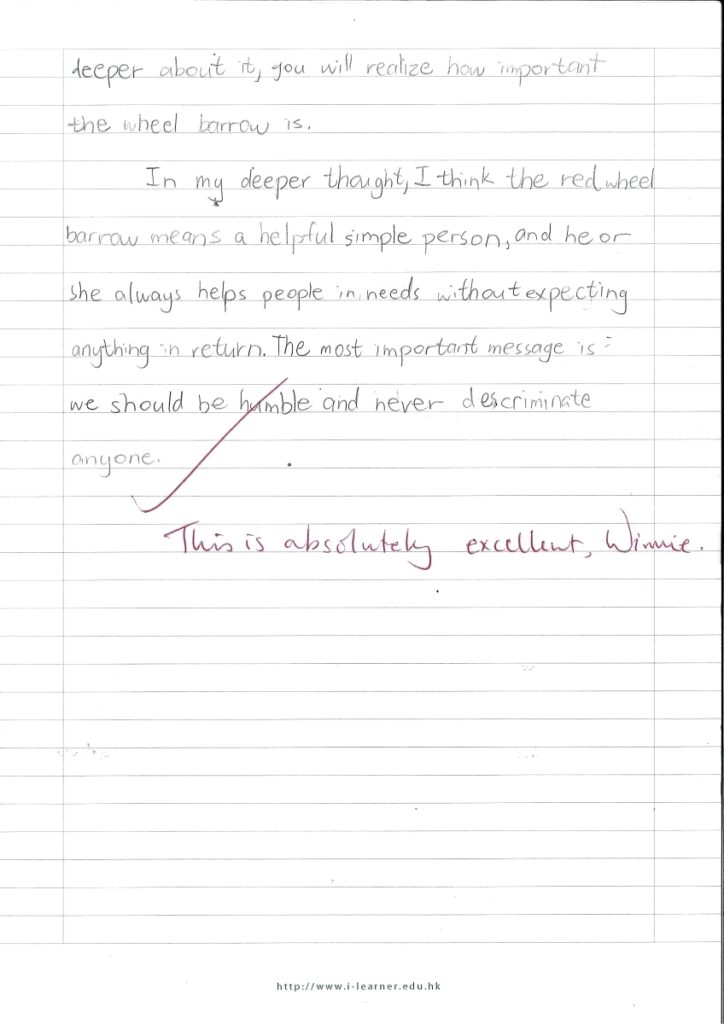 deeper about it, you will realize how important
the wheel barrow is.
In my deeper thought, I think the red wheel
barrow means a helpful simple person, and he or
she always helps people in needs without expecting
anything in return. The most important message is :
we should be humble and never descriminate
anyone.
This is absolutely excellent, Winnie.
http://www.i-learner.edu.hk